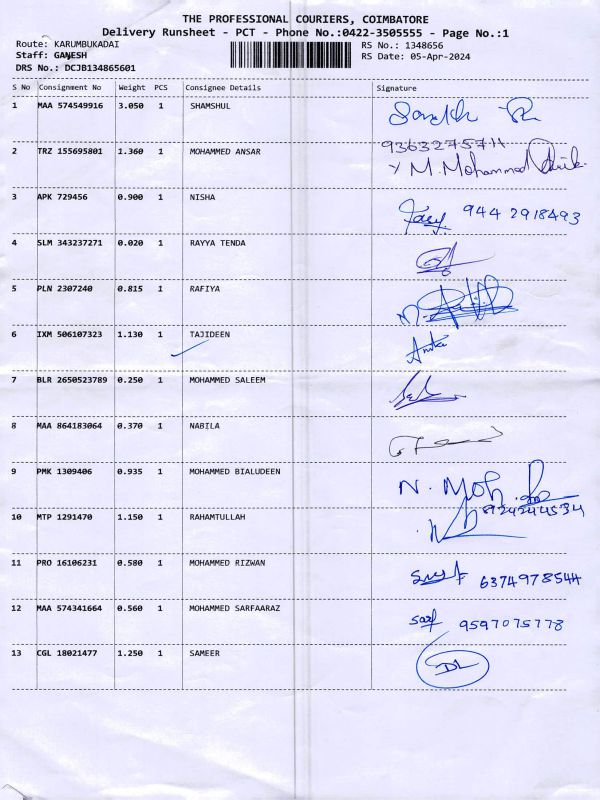 THE PROFESSIONAL COURIERS, COIMBATORE
Delivery Runsheet - PCT - Phone No.:0422-3505555 - Page No.:1
Route: KARUMBUKADAI RS No.: 1348656
Staff: GANESH RS Date: 05-Apr-2024
DRS No.: DCJB134865601
S No Consignment No Weight PCS Consignee Details Signature
1 MAA 574549916 3.050 1 SHAMSHUL
2 TRZ 155695801 1.360 1 MOHAMMED ANSAR M. Mohammed
3 APK 729456 0.900 1 NISHA 944 2918493
4 SLM 343237271 0.020 1 RAYYA TENDA
5 PLN 2307240 0.815 1 RAFIYA
6 IXM 506107323 1.130 1 TAJIDEEN
7 BLR 2650523789 0.250 1 MOHAMMED SALEEM
8 MAA 864183064 0.370 1 NABILA
9 PMK 1309406 0.935 1 MOHAMMED BIALUDEEN N. Moh
10 MTP 1291470 1.150 1 RAHAMTULLAH
11 PRO 16106231 0.580 1 MOHAMMED RIZWAN
12 MAA 574341664 0.560 1 MOHAMMED SARFAARAZ sarf 9597075778
13 CGL 18021477 1.250 1 SAMEER DL